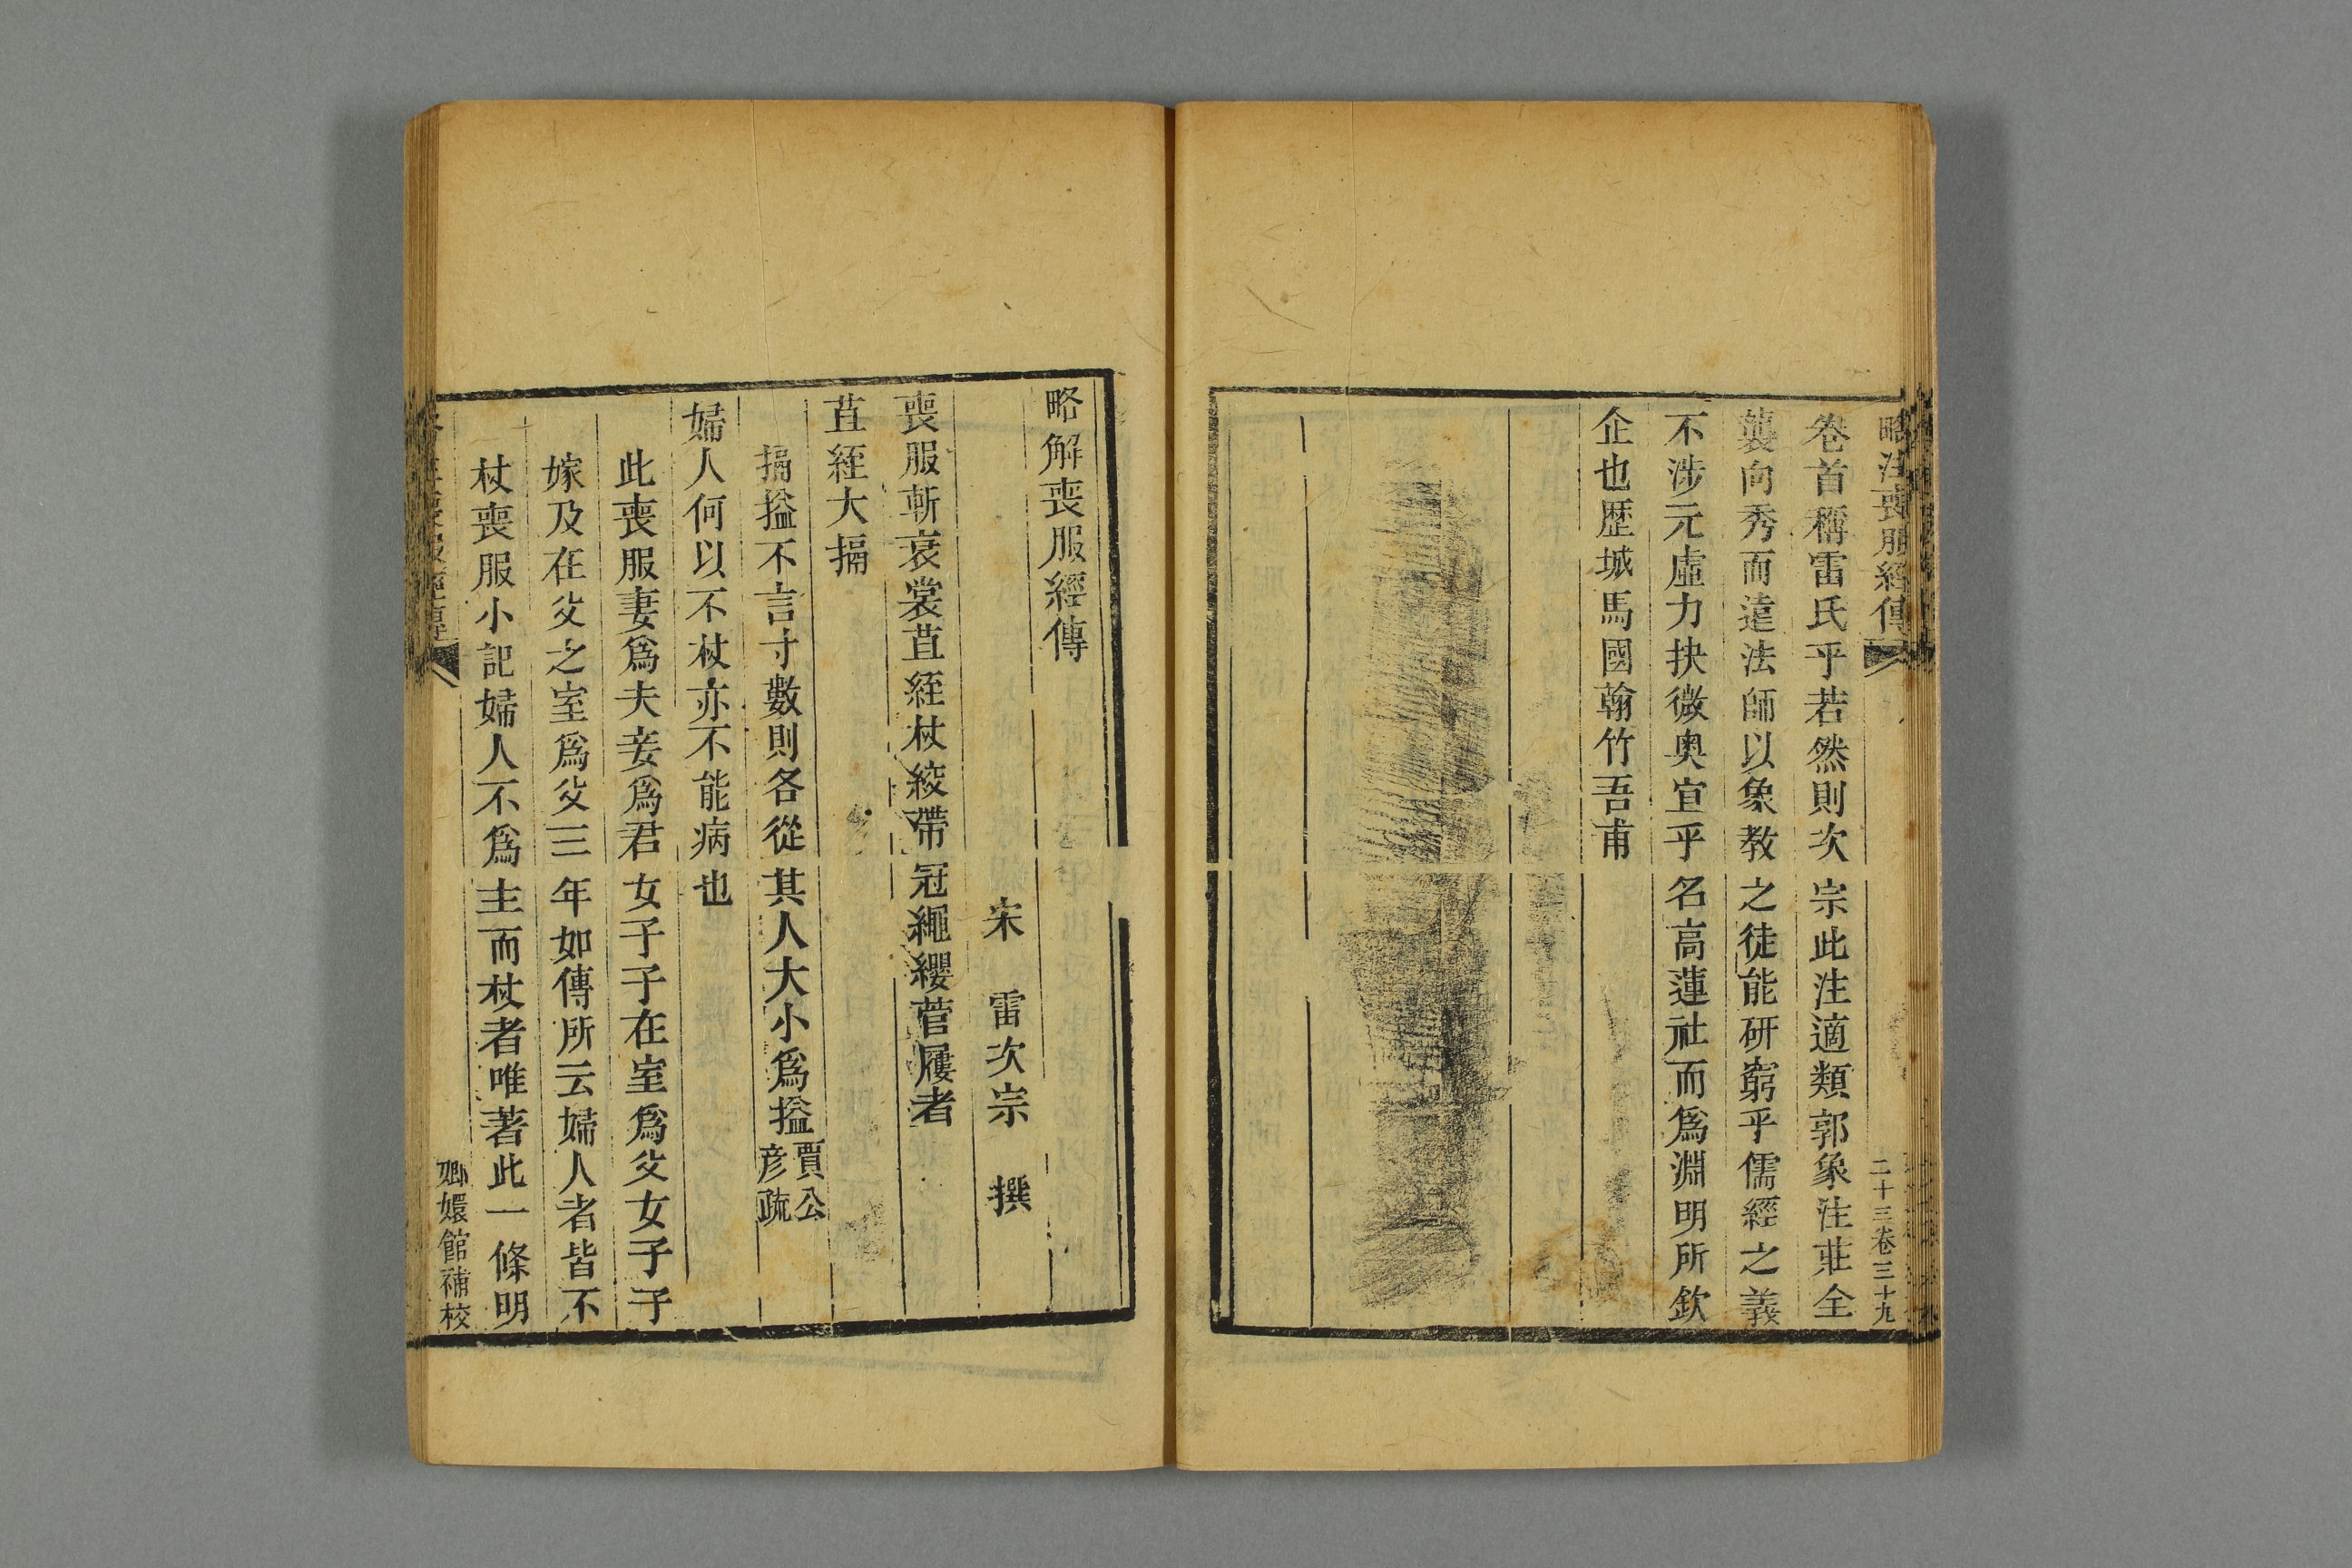 略注喪服經傳 二十三卷三十九
卷首稱雷氏乎若然則次宗此注適類郭象注莊全
襲向秀而遠法師以象教之徒能研窮乎儒經之義
不涉元虛力抉微奥宜乎名高蓮社而爲淵明所欽
企也歴城馬國翰竹吾甫
略解喪服經傳
宋 雷次宗 撰
喪服斬衰裳苴絰杖絞帶冠繩纓菅屨者
苴絰大搹
搹搤不言寸數則各從其人大小爲搤賈公彦疏
婦人何以不杖亦不能病也
此喪服妻爲夫妾爲君女子子在室爲父女子子
嫁及在父之室爲父三年如傳所云婦人者皆不
杖喪服小記婦人不爲主而杖者唯著此一條明
嫏嬛館補校